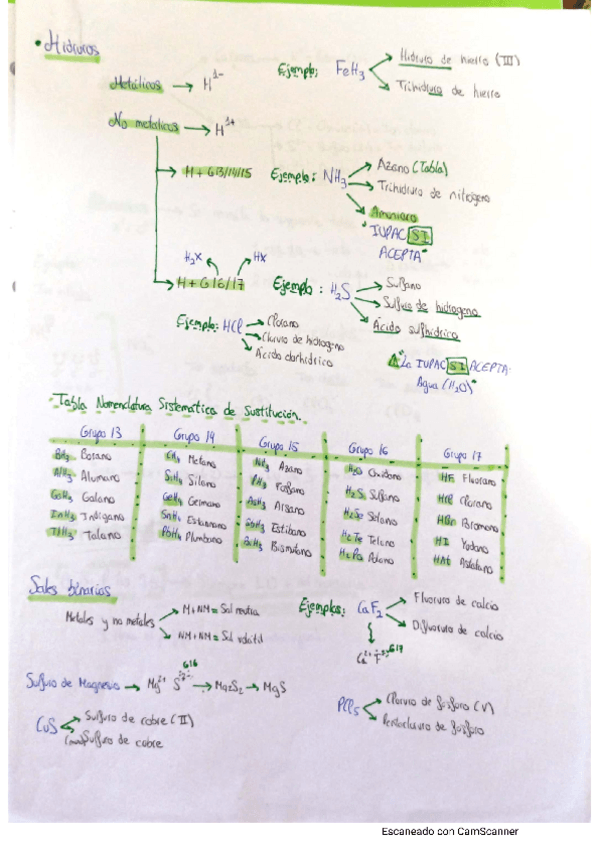 • Hidruros
Metálicos → H¹⁻
No metálicos → H¹⁺
Ejemplo: FeH₃
Hidruro de hierro (III)
Trihidruro de hierro
→ H + G13/14/15
Ejemplo: NH₃
Azano (Tabla)
Trihidruro de nitrógeno
Amoniaco
IUPAC SI
ACEPTA
H₂X
HX
→ H + G16/17
Ejemplo: H₂S
Sulfano
Sulfuro de hidrógeno
Ácido sulfhídrico
Ejemplo: HCl
Clorano
Cloruro de hidrógeno
Ácido clorhídrico
La IUPAC SI ACEPTA
Agua (H₂O)
Tabla Nomenclatura Sistemática de Sustitución.
Grupo 13 Grupo 14 Grupo 15 Grupo 16 Grupo 17
BH₃ Borano CH₄ Metano NH₃ Azano H₂O Oxidano HF Fluorano
AlH₃ Alumano SiH₄ Silano PH₃ Fosfano H₂S Sulfano HCl Clorano
GaH₃ Galano GeH₄ Germano AsH₃ Arsano H₂Se Selano HBr Bromano
InH₃ Indigano SnH₄ Estannano SbH₃ Estibano H₂Te Telano HI Yodano
TlH₃ Talano PbH₄ Plumbano BiH₃ Bismutano H₂Po Polano HAt Astatano
Sales binarias
Metales y no metales
M+NM = Sal neutra
NM+NM = Sal volátil
Ejemplos: CaF₂
Fluoruro de calcio
Difluoruro de calcio
G17
G16
Sulfuro de Magnesio → Mg²⁺ S²⁻ → Mg₂S₂ → MgS
CuS
Sulfuro de cobre (II)
(mono)Sulfuro de cobre
PCl₅
Cloruro de fósforo (V)
Pentacloruro de fósforo
Escaneado con CamScanner